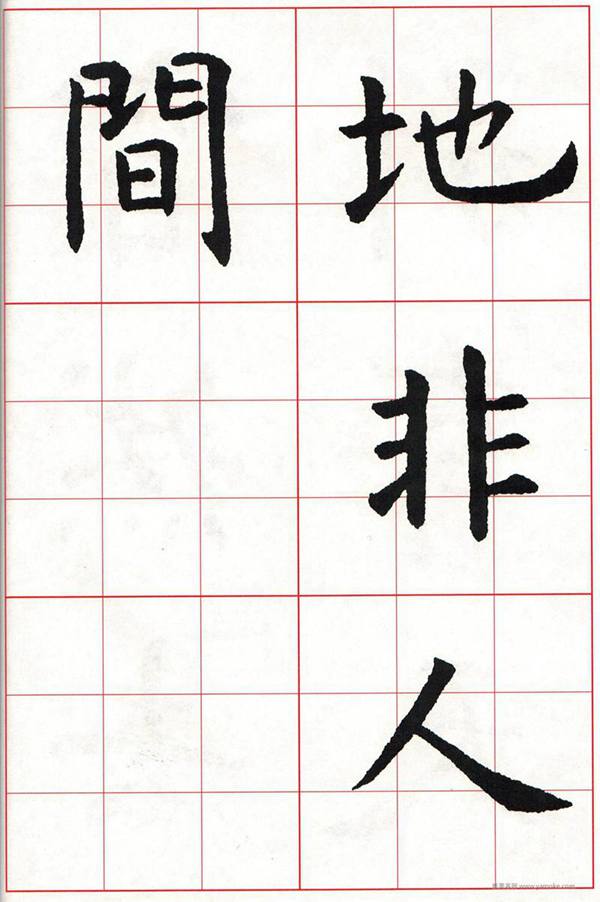 地非人
間
www.yamoke.com